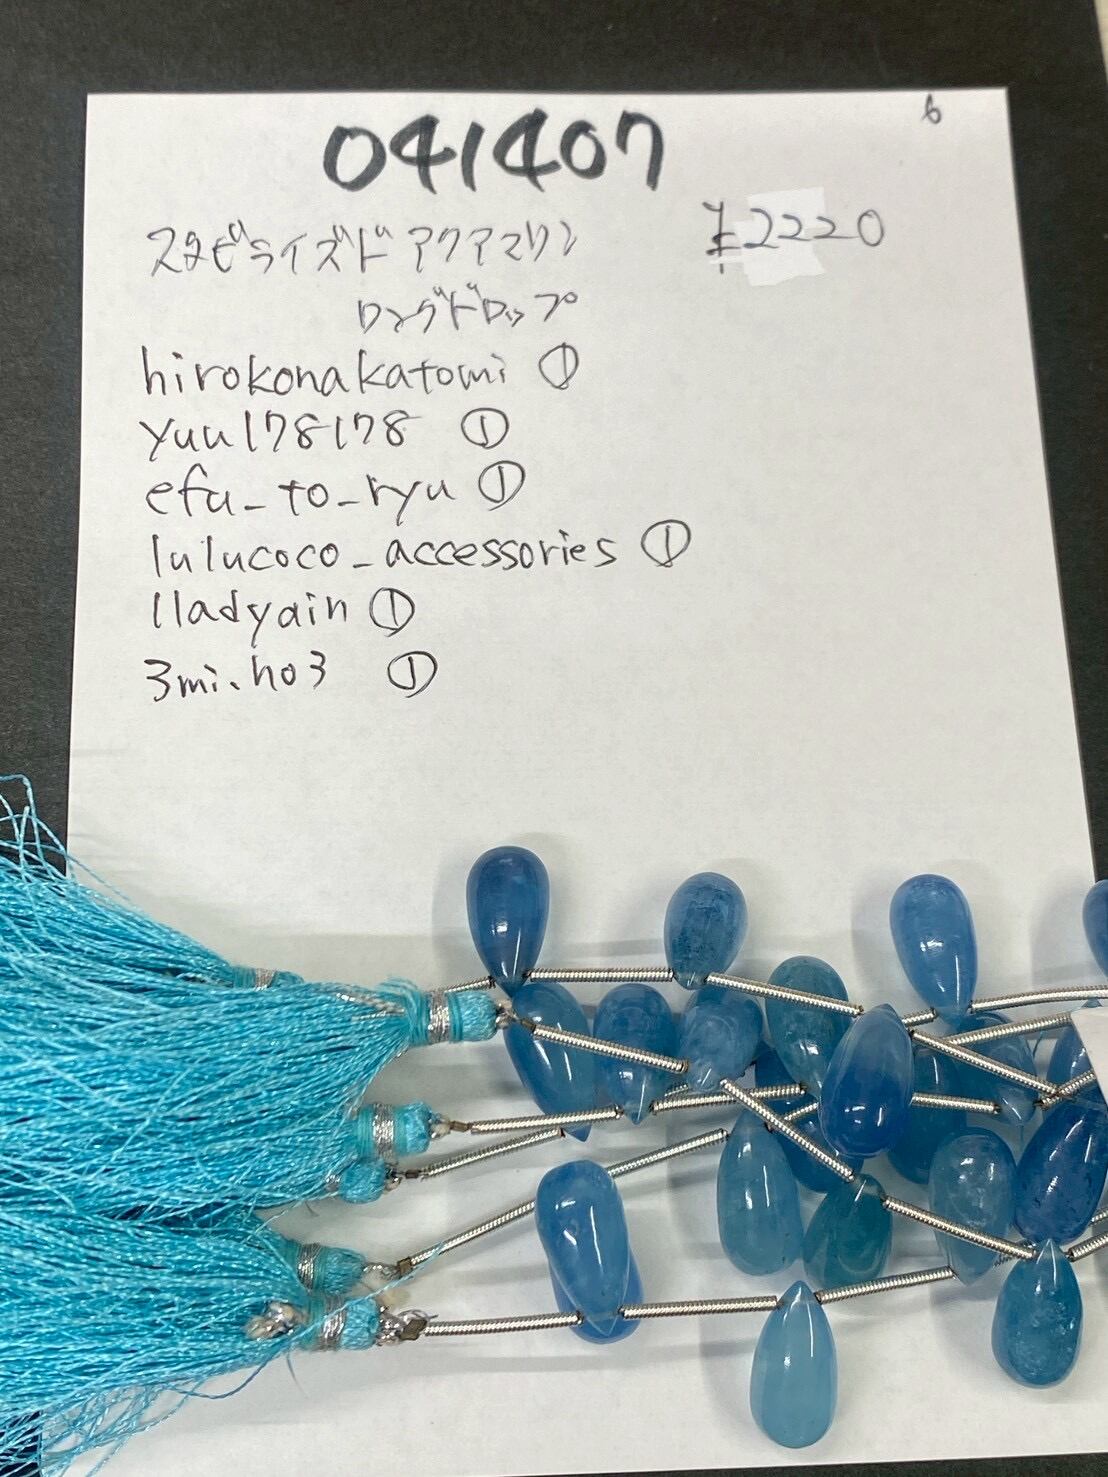 6
041407
スタビライズド アクアマリン ¥2220
ロングドロップ
hirokonakatomi ①
yuu178178 ①
efu_to_ryu ①
lulucoco_accessories ①
lladyain ①
3mi.ho3 ①